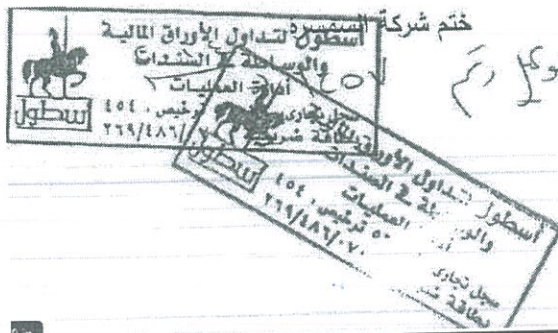 ختم شركة السمسرة
أسطول لتداول الأوراق المالية
والوساطة في السندات
إدارة العمليات
سجل تجاري
ترخيص ٤٥٤
بطاقة ضريبية
٢٦٩/٤٨٦/
أسطول
أسطول لتداول الأوراق المالية
والوساطة في السندات
العمليات
سجل تجاري ٥٠ ترخيص ٤٥٤
بطاقة ضريبية ٢٦٩/٤٨٦/٠٧٠
أسطول